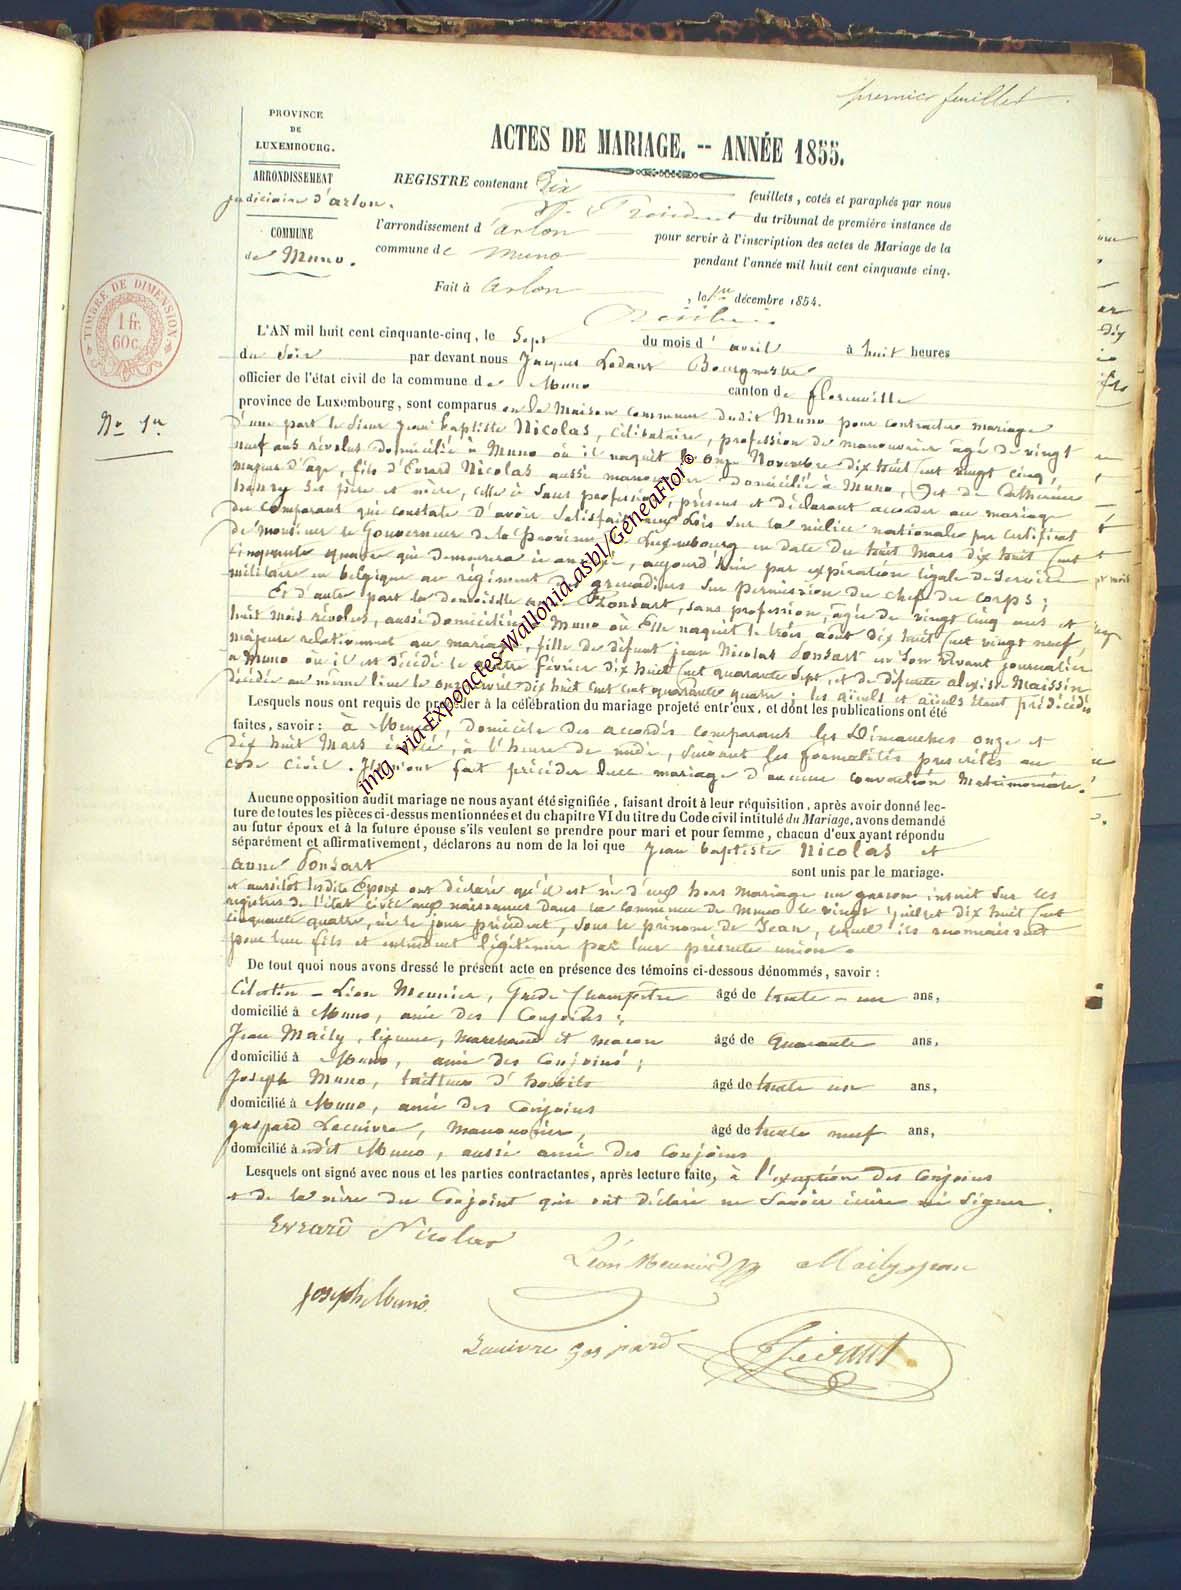 premier feuillet.
PROVINCE
DE
LUXEMBOURG.
ARRONDISSEMENT
judiciaire d'arlon.
COMMUNE
de Muno.
ACTES DE MARIAGE. -- ANNÉE 1855.
REGISTRE contenant Dix feuillets, cotés et paraphés par nous
Président du tribunal de première instance de
l'arrondissement d'arlon pour servir à l'inscription des actes de Mariage de la
commune de Muno pendant l'année mil huit cent cinquante cinq.
Fait à arlon, le 1er décembre 1854.
TIMBRE DE DIMENSION
1 fr.
60 c.
No 1er
L'AN mil huit cent cinquante-cinq, le Sept du mois d'avril à huit heures
du Soir par devant nous Jacques Ledant Bourgmestre
officier de l'état civil de la commune de Muno canton de florenville
province de Luxembourg, sont comparus en la Maison Commune dudit Muno pour contracter mariage
D'une part le Sieur Jean baptiste Nicolas, Célibataire, profession de manouvrier âgé de vingt
neuf ans révolus domicilié à Muno où il naquit le onze Novembre dix huit cent vingt cinq,
majeur d'age, fils d'Evrard Nicolas aussi manouvrier domicilié à Muno, et de Catherine
henry ses père et mère, celle ci Sans profession, présens et déclarant accorder au mariage
du Comparant qui constate D'avoir Satisfait aux Lois Sur la milice nationale par certificat
de Monsieur le Gouverneur de la Province de Luxembourg en date du huit Mars dix huit cent
cinquante quatre qui demeurera ci annexé, aujourd'hui par expiration légale de Service
militaire en belgique au régiment des grenadiers Sur permission du chef du corps;
Et d'autre part la demoiselle anne Ponsart, sans profession, âgée de vingt cinq ans et
huit mois révolus, aussi domiciliée à Muno où Elle naquit le trois août dix huit cent vingt neuf,
majeure relativement au mariage, fille de défunt jean Nicolas Ponsart en Son vivant journalier
à Muno où il est décédé le quatre février dix huit cent quarante Sept, et de défunte alexise Maissin
décédée au même lieu le onze avril dix huit cent quarante quatre; les aïeuls et aïeules étant prédécédés
Lesquels nous ont requis de procéder à la célébration du mariage projeté entr'eux, et dont les publications ont été
faites, savoir: à Muno, domicile des accordés comparans les Dimanches onze et
dix huit Mars écoulé, à l'heure de midi, suivant les formalités prescrites au
code civil. Ils n'ont fait précéder leur mariage d'aucune convention Matrimoniale.
Aucune opposition audit mariage ne nous ayant été signifiée, faisant droit à leur réquisition, après avoir donné lec-
ture de toutes les pièces ci-dessus mentionnées et du chapitre VI du titre du Code civil intitulé du Mariage, avons demandé
au futur époux et à la future épouse s'ils veulent se prendre pour mari et pour femme, chacun d'eux ayant répondu
séparément et affirmativement, déclarons au nom de la loi que Jean baptiste Nicolas et
anne Ponsart sont unis par le mariage.
et aussitôt lesdits Epoux ont déclaré qu'il est né d'eux hors mariage un garçon inscrit sur les
registres de l'état civil aux naissances dans la commune de Muno le vingt juillet dix huit cent
cinquante quatre, né le jour précédent, sous le prénom de Jean, lequel ils reconnaissent
pour leur fils et entendent légitimer par leur présente union.
De tout quoi nous avons dressé le présent acte en présence des témoins ci-dessous dénommés, savoir :
Célestin - Léon Meunier, Garde Champêtre âgé de trente - un ans,
domicilié à Muno, ami des Conjoins;
Jean Maily, ligeune, marchand et maçon âgé de quarante ans,
domicilié à Muno, ami des Conjoins;
Joseph Muno, tailleur d'habits âgé de trente un ans,
domicilié à Muno, ami des Conjoins
gaspard Lecuivre, Manouvrier, âgé de trente neuf ans,
domicilié à udit Muno, aussi ami des Conjoins
Lesquels ont signé avec nous et les parties contractantes, après lecture faite, à l'exception des Conjoins
et de la mère du Conjoint qui ont déclaré ne Savoir écrire ni Signer.
Evrard Nicolas
Léon Meunier
Maily jean
Joseph Muno
Lecuivre gaspard
img via Expoactes-Wallonia.asbl/GeneaFlor©